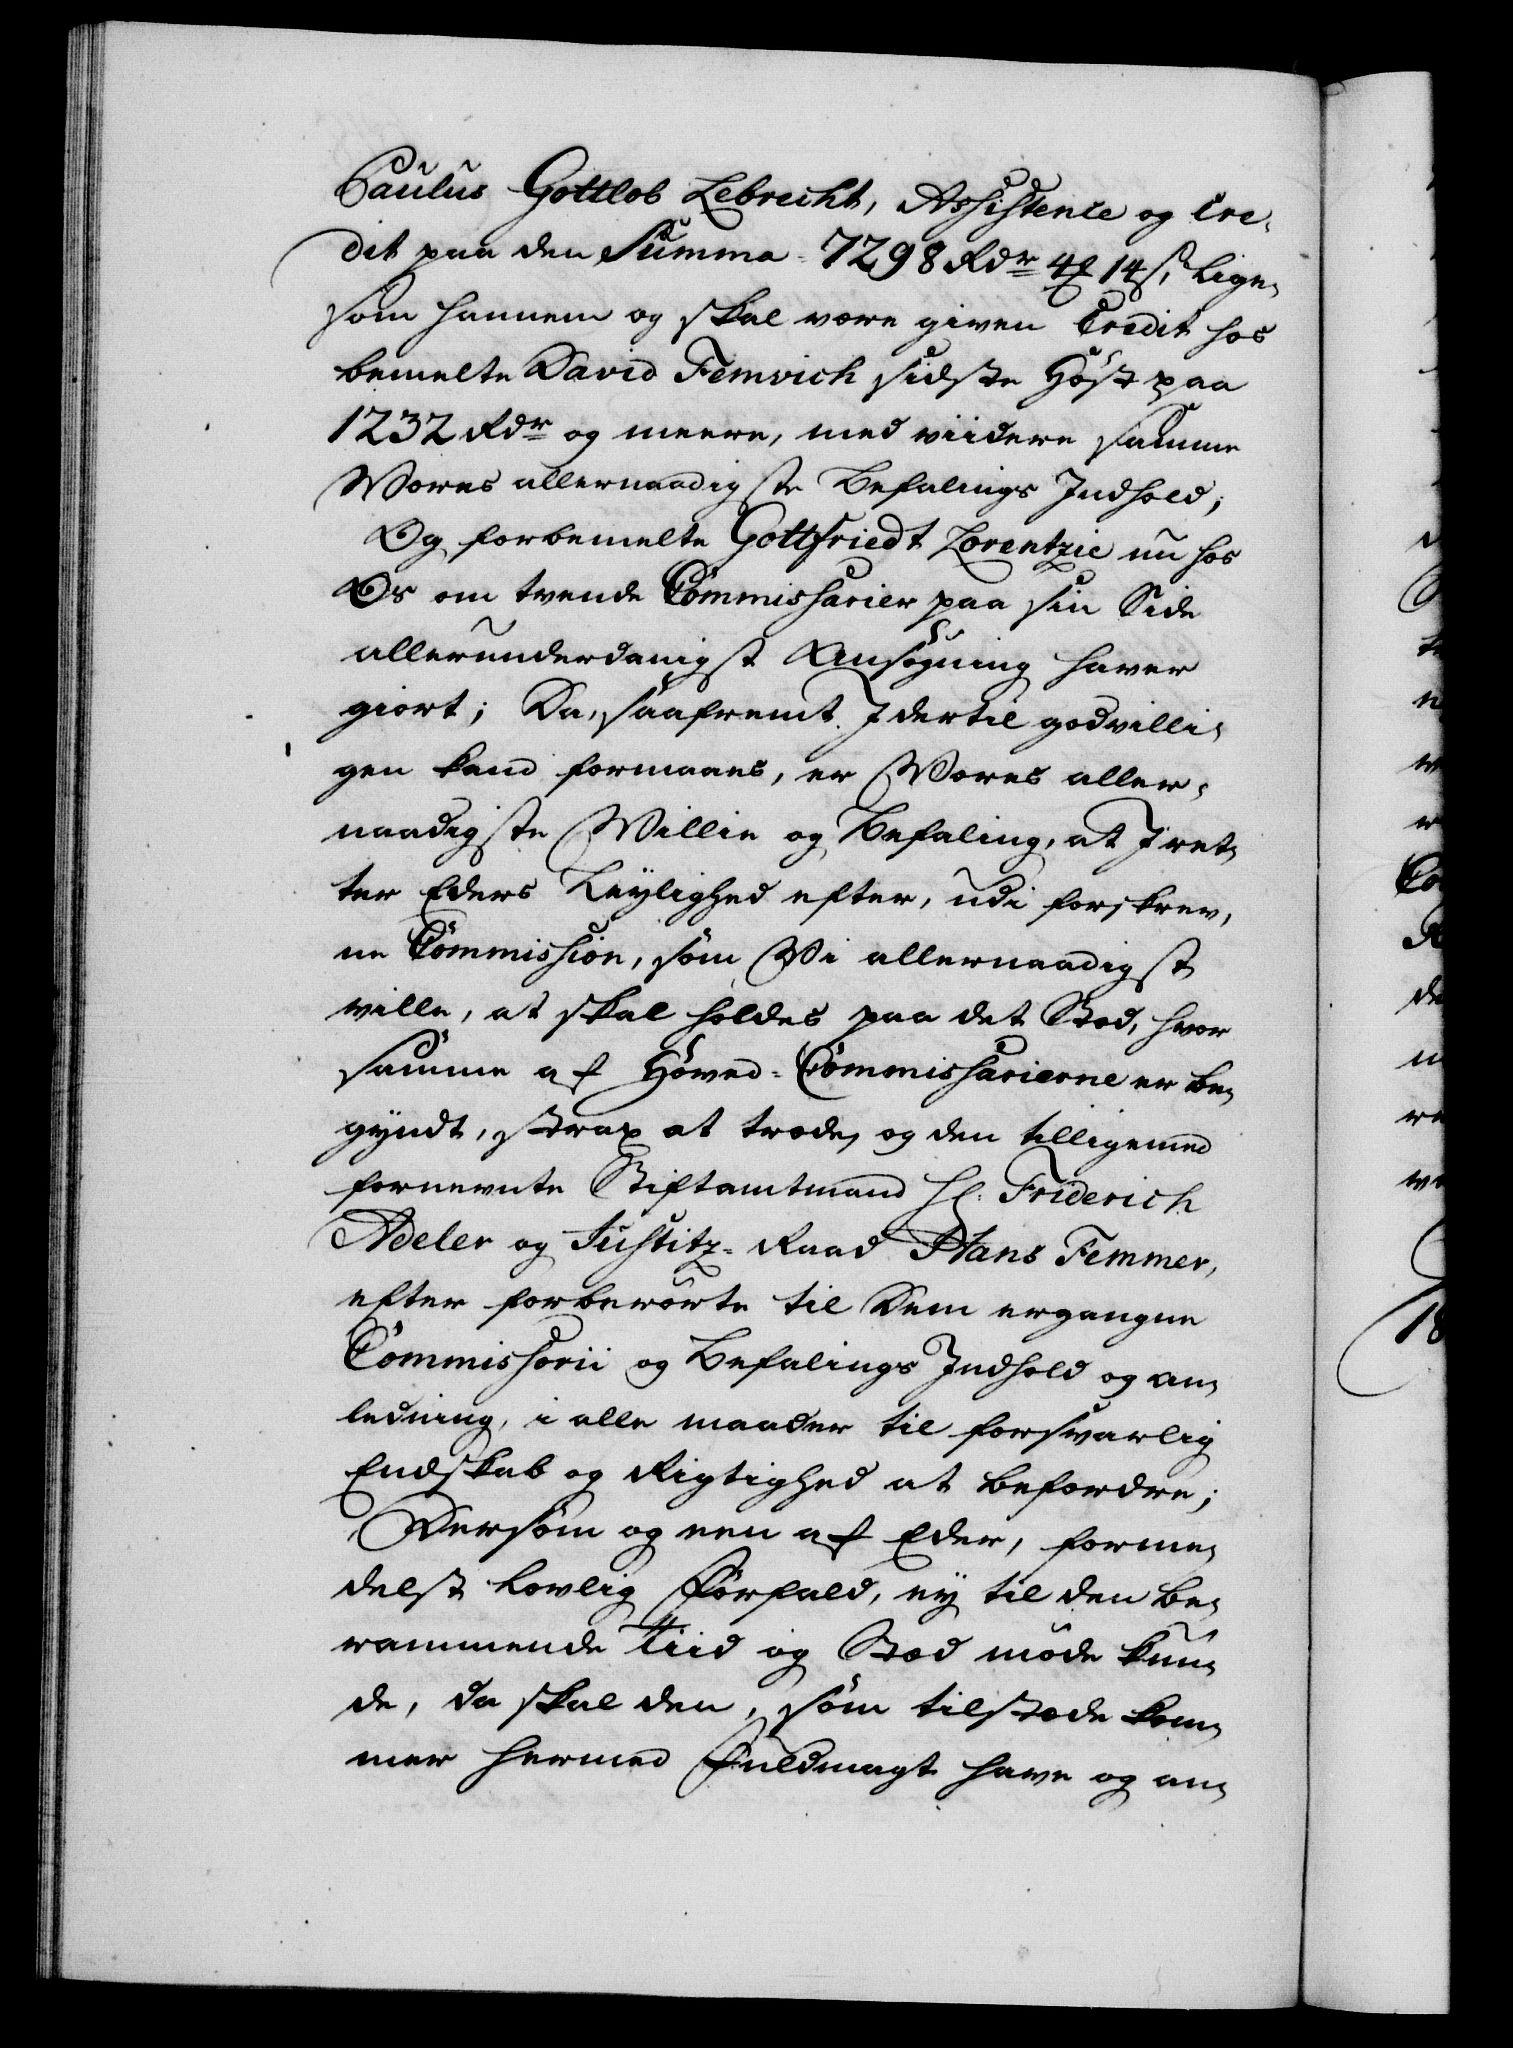 Paulus Gottlob Lebrecht, Assistence og Cre-
dit paa den Summa 7298 Rdr 4 14 s, lige-
som hannem og skal være given Credit hos
bemelte David Femvich sidste Höst paa
1232 Rdr og meere, med viidere samme
Vores allernaadigste Befalings Indhold;
Og forbemelte Gottfriedt Lorentzie nu hos
Os om tvende Commissarier paa sin Side
allerunderdanigst Ansögning haver
giort; Da, saafremt I dertil godvilli-
gen kand formaaes, er Vores aller-
naadigste Villie og Befaling, at I ret-
ter Eders Leylighed efter, udi forskrev-
ne Commission, som Vi allernaadigst
ville, at skal holdes paa det Stæd, hvor
samme af Hoved-Commissarierne er be-
gyndt, strax at træde, og den tilligemed
fornevnte Stiftamtmand Hr: Friderich
Adeler og Justitz-Raad Hans Femmer,
efter forberörte til Dem ergangne
Commissorii og Befalings Indhold og an-
ledning, i alle maader til forsvarlig
Endskab og Rigtighed at befordre;
Dersom og een af Eder, forme-
delst lovlig Forfald, ey til den be-
rammende Tiid og Stæd möde kun-
de, da skal den, som tilstæde kom-
mer hermed Fuldmagt have og an-